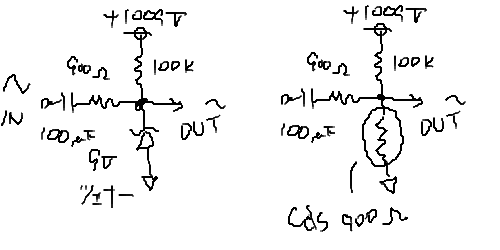 +1009V
900Ω
100K
IN
100μF
OUT
9V
ツェナー
+1009V
900Ω
100K
100μF
OUT
Cds 900Ω